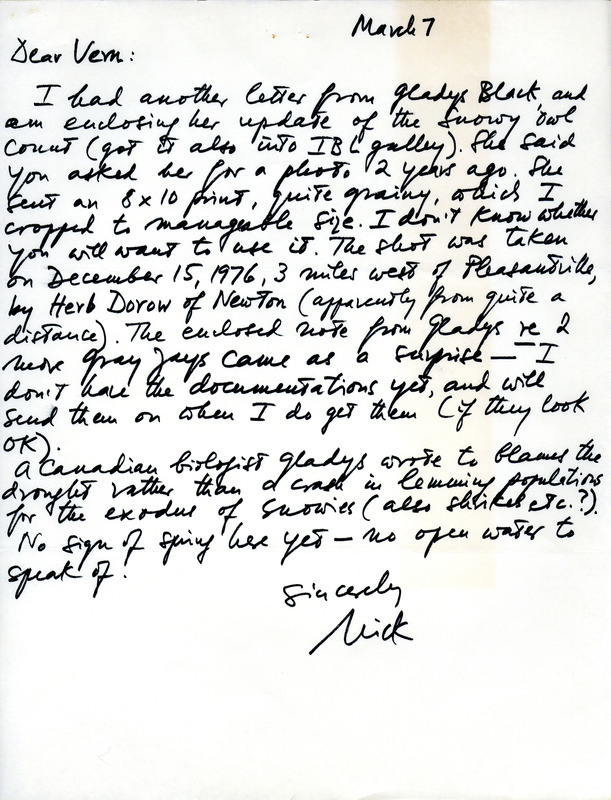 March 7
Dear Vern:
I had another letter from Gladys Black, and
am enclosing her update of the Snowy Owl
count (got it also into IBL galley). She said
you asked her for a photo 2 years ago. She
sent an 8x10 print, quite grainy, which I
cropped to manageable size. I don't know whether
you will want to use it. The shot was taken
on December 15, 1976, 3 miles west of Pleasantville,
by Herb Dorow of Newton (apparently from quite a
distance). The enclosed note from Gladys re 2
more Gray Jays came as a surprise — I
don't have the documentations yet, and will
send them on when I do get them (if they look
OK).
A Canadian biologist Gladys wrote to blames the
drought rather than a crash in lemming populations
for the exodus of Snowies (also shrikes etc.?).
No sign of spring here yet — no open water to
speak of.
Sincerely
Nick